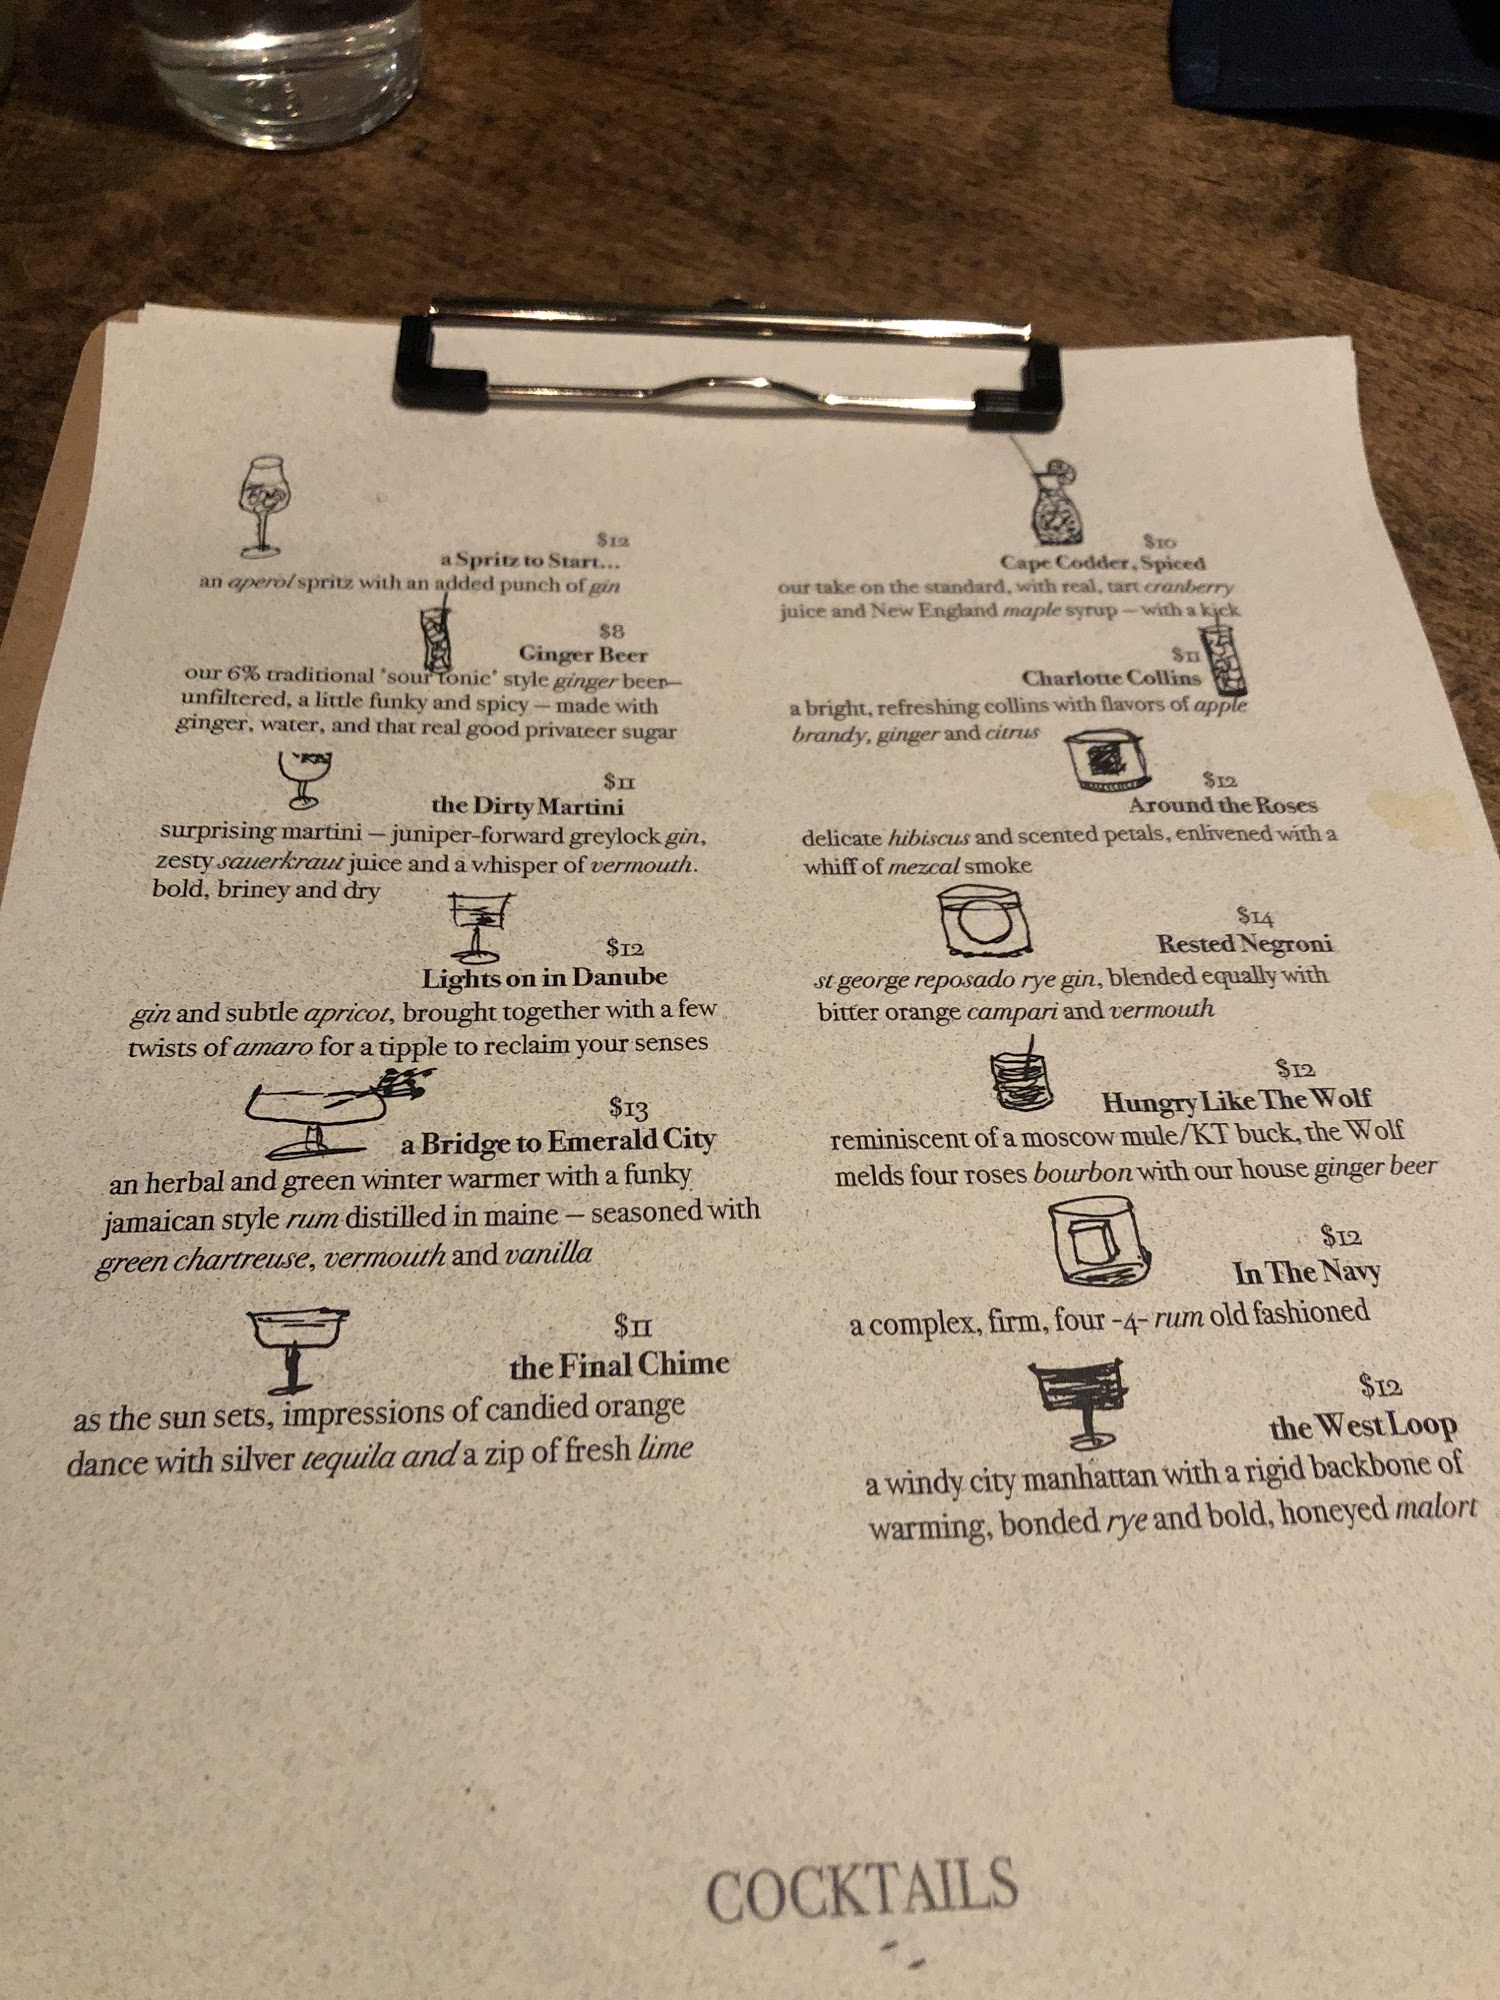 $12
a Spritz to Start...
an aperol spritz with an added punch of gin
$8
Ginger Beer
our 6% traditional 'sour tonic' style ginger beer—
unfiltered, a little funky and spicy — made with
ginger, water, and that real good privateer sugar
$11
the Dirty Martini
surprising martini — juniper-forward greylock gin,
zesty sauerkraut juice and a whisper of vermouth.
bold, briney and dry
$12
Lights on in Danube
gin and subtle apricot, brought together with a few
twists of amaro for a tipple to reclaim your senses
$13
a Bridge to Emerald City
an herbal and green winter warmer with a funky
jamaican style rum distilled in maine — seasoned with
green chartreuse, vermouth and vanilla
$11
the Final Chime
as the sun sets, impressions of candied orange
dance with silver tequila and a zip of fresh lime
$10
Cape Codder, Spiced
our take on the standard, with real, tart cranberry
juice and New England maple syrup — with a kick
$11
Charlotte Collins
a bright, refreshing collins with flavors of apple
brandy, ginger and citrus
$12
Around the Roses
delicate hibiscus and scented petals, enlivened with a
whiff of mezcal smoke
$14
Rested Negroni
st george reposado rye gin, blended equally with
bitter orange campari and vermouth
$12
Hungry Like The Wolf
reminiscent of a moscow mule/KT buck, the Wolf
melds four roses bourbon with our house ginger beer
$12
In The Navy
a complex, firm, four -4- rum old fashioned
$12
the West Loop
a windy city manhattan with a rigid backbone of
warming, bonded rye and bold, honeyed malort
COCKTAILS